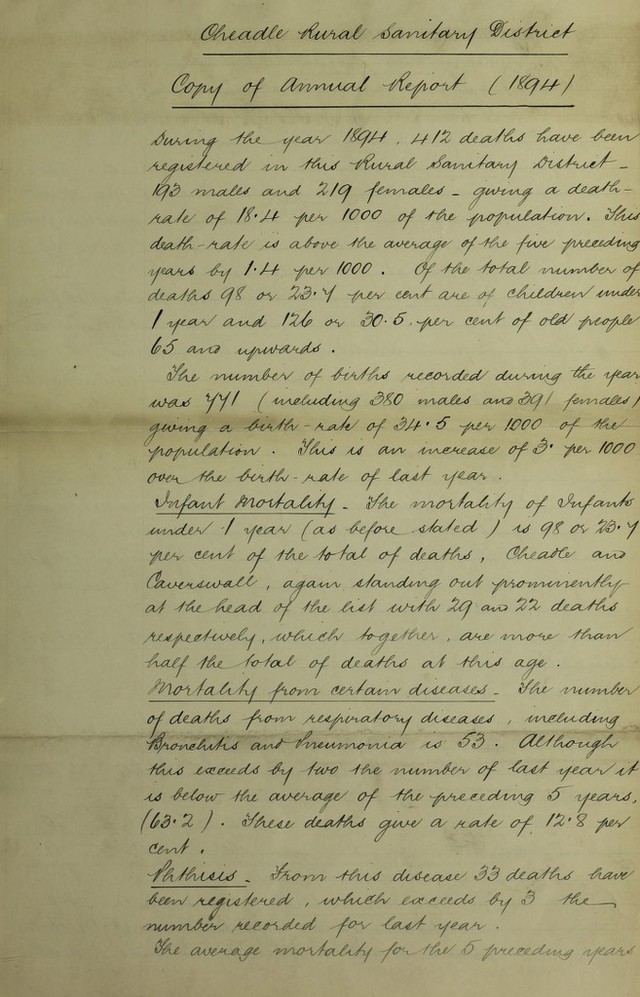 Cheadle Rural Sanitary District
Copy of Annual Report (1894)
During the year 1894, 412 deaths have been
registered in this Rural Sanitary District -
193 males and 219 females - giving a death-
rate of 18.4 per 1000 of the population. This
death-rate is above the average of the five preceding
years by 1.4 per 1000. Of the total number of
deaths 98 or 23.7 per cent are of children under
1 year and 126 or 30.5 per cent of old people
65 and upwards.
The number of births recorded during the year
was 771 (including 380 males and 391 females)
giving a birth-rate of 34.5 per 1000 of the
population. This is an increase of 3. per 1000
over the birth-rate of last year.
Infant Mortality - The mortality of Infants
under 1 year (as before stated) is 98 or 23.7
per cent of the total of deaths, Cheadle and
Caverswall, again standing out prominently
at the head of the list with 29 and 22 deaths
respectively, which together, are more than
half the total of deaths at this age.
Mortality from certain diseases - The number
of deaths from respiratory diseases, including
Bronchitis and Pneumonia is 53. Although
this exceeds by two the number of last year it
is below the average of the preceding 5 years,
(63.2). These deaths give a rate of 12.8 per
cent.
Phthisis - From this disease 33 deaths have
been registered, which exceeds by 3 the
number recorded for last year.
The average mortality for the 5 preceding years